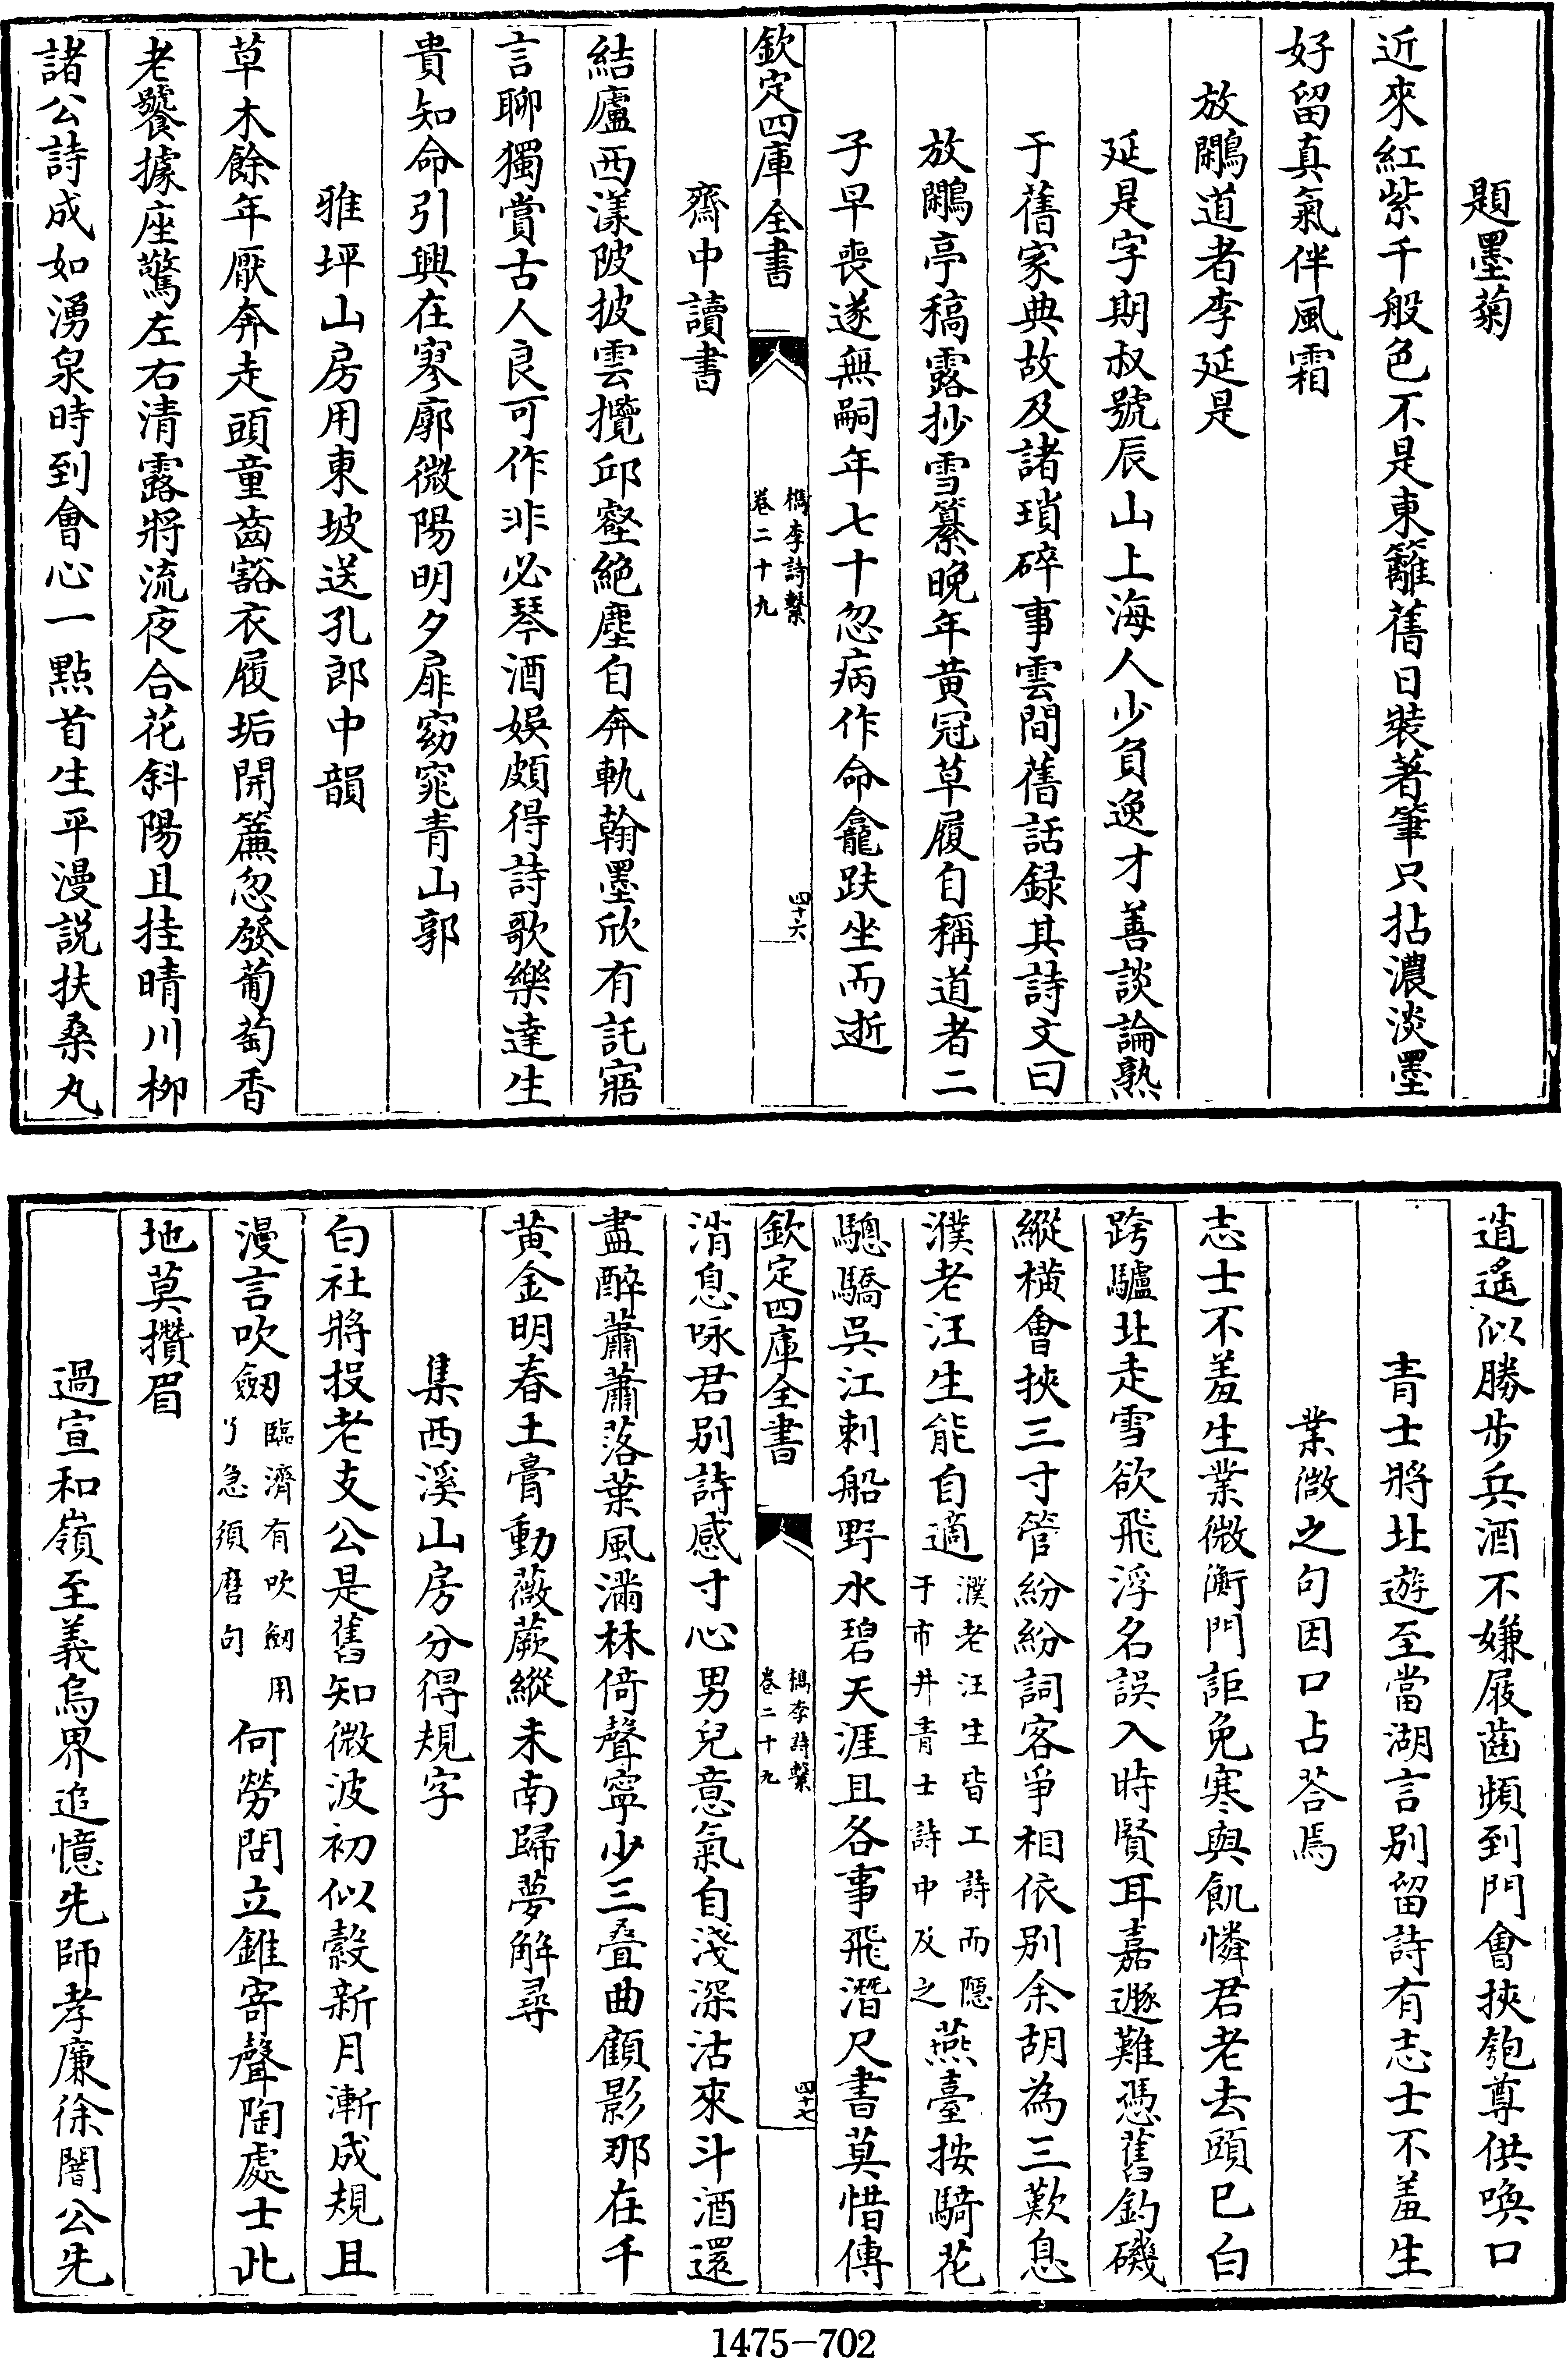 題墨菊
近來紅紫千般色不是東籬舊日裝著筆只拈濃淡墨
好留真氣伴風霜
放鷴道者李延是
延是字期叔號辰山上海人少負逸才善談論熟
于舊家典故及諸瑣碎事雲間舊話録其詩文曰
放鷴亭稿露抄雪纂晚年黄冠草履自稱道者二
子早喪遂無嗣年七十忽病作命龕趺坐而逝
欽定四庫全書
檇李詩繫
卷二十九
四十六
齋中讀書
結廬西漾陂披雲攬邱壑絶塵自奔軌翰墨欣有託寤
言聊獨賞古人良可作非必琴酒娱頗得詩歌樂達生
貴知命引興在寥廓微陽明夕扉窈窕青山郭
雅坪山房用東坡送孔郎中韻
草木餘年厭奔走頭童齒豁衣履垢開簾忽發葡萄香
老饕據座驚左右清露將流夜合花斜陽且挂晴川柳
諸公詩成如湧泉時到會心一點首生平漫説扶桑丸
逍遥似勝步兵酒不嫌屐齒頻到門會挾匏尊供喚口
青士將北遊至當湖言别留詩有志士不羞生
業微之句因口占荅焉
志士不羞生業微衡門詎免寒與飢憐君老去頭已白
跨驢北走雪欲飛浮名誤入時賢耳嘉遯難憑舊釣磯
縱横會挾三寸管紛紛詞客爭相依别余胡為三歎息
濮老汪生能自適
濮老汪生皆工詩而隱
于市井青士詩中及之
燕臺按騎花
驄驕吳江刺船野水碧天涯且各事飛潛尺書莫惜傳
欽定四庫全書
檇李詩繫
卷二十九
四十七
消息咏君别詩感寸心男兒意氣自淺深沽來斗酒還
盡醉蕭蕭落葉風滿林倚聲寧少三叠曲顧影那在千
黄金明春土膏動薇蕨縱未南歸夢解尋
集西溪山房分得規字
白社將投老支公是舊知微波初似縠新月漸成規且
漫言吹劒
臨濟有吹劒用
了急須磨句
何勞問立錐寄聲陶處士此
地莫攢眉
過宣和嶺至義烏界追憶先師孝廉徐闇公先
1475-702